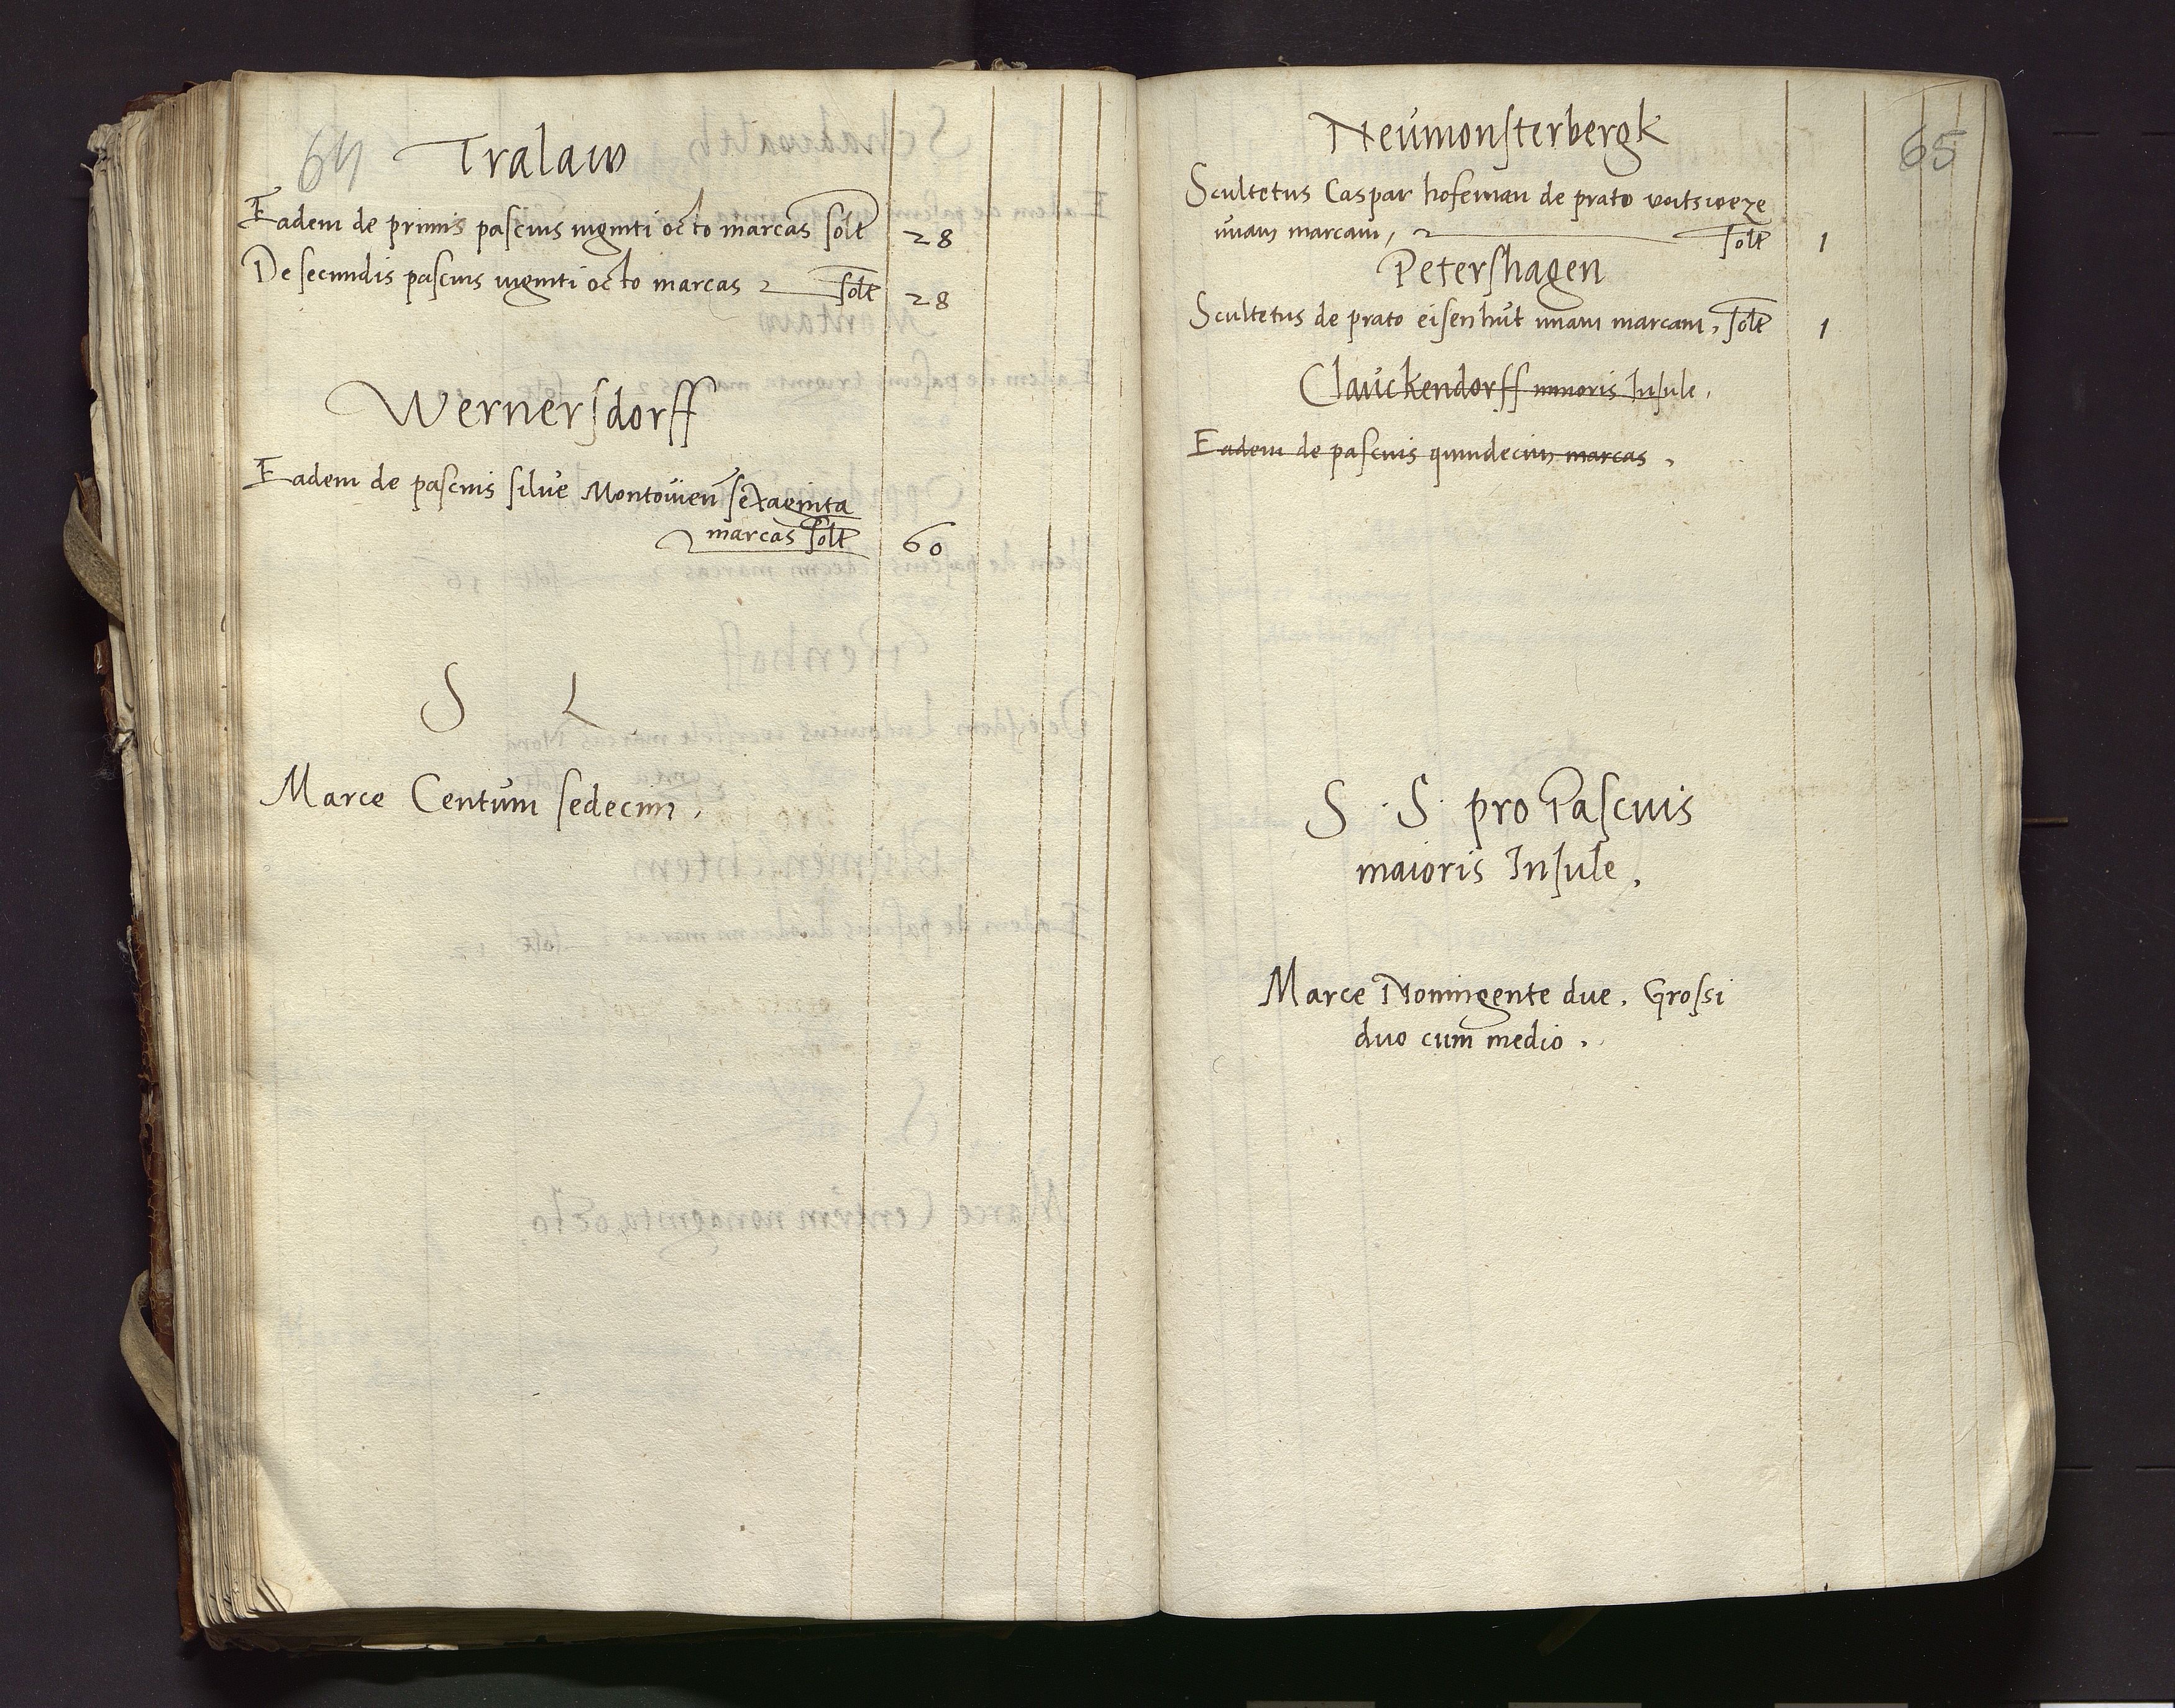 64
Tralaw
Eadem de primis pascuis viginti octo marcas solt 28
De secundis pascuis viginti octo marcas solt 28
Wernersdorff
Eadem de pascuis silve Montovien sexaginta
marcas solt 60
S L
Marce Centum sedecim.
65
Neumonsterbergk
Scultetus Caspar hofeman de prato voitsweze
unam marcam, solt 1
Petershagen
Scultetus de prato eisenhut unam marcam, solt 1
Clauckendorff minoris Insule.
Eadem de pascuis quindecim marcas.
S. S. pro Pascuis
maioris Insule.
Marce Noningente due. Grossi
duo cum medio.